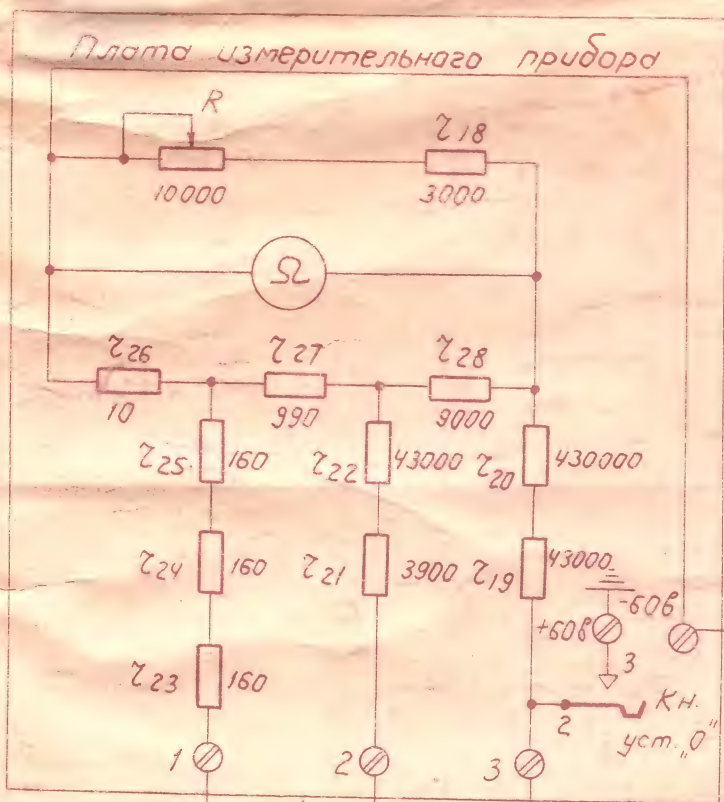 Плата измерительного прибора
R
10000
τ18
3000
Ω
τ26
10
τ27
990
τ28
9000
τ25
160
τ22
43000
τ20
430000
τ24
160
τ21
3900
τ19
43000
-60в
+60в
τ23
160
3
2
Кн.
уст. „0"
1
2
3